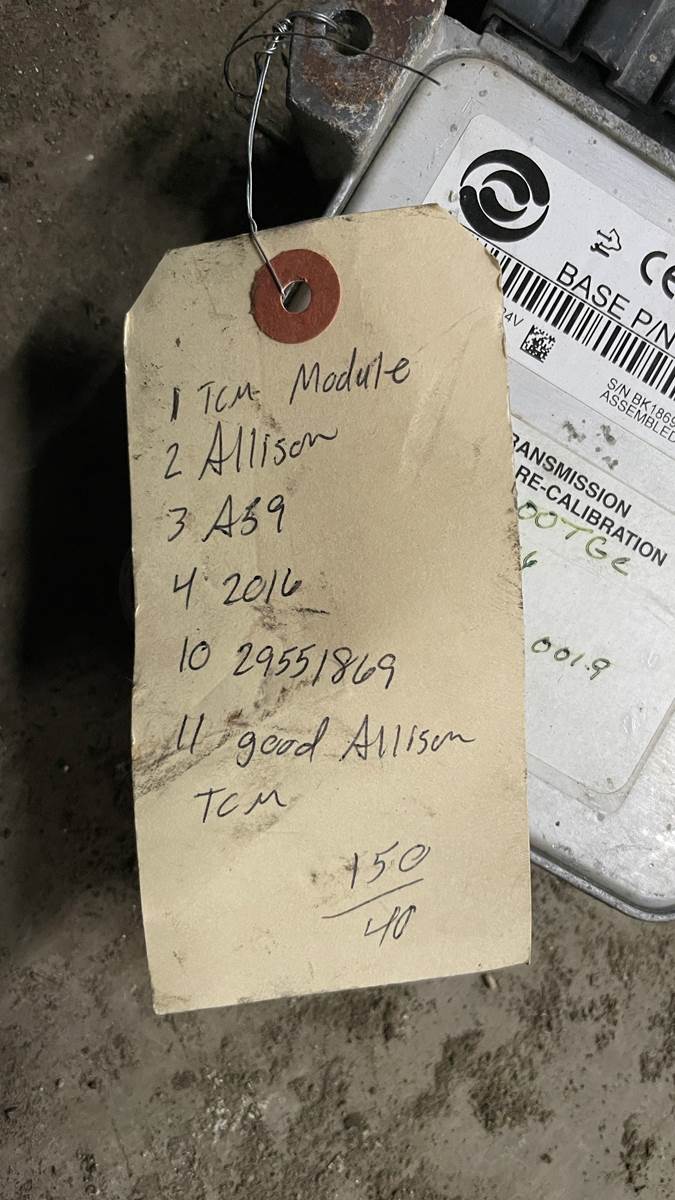 1 TCM Module
2 Allison
3 A59
4 2016
10 29551869
11 good Allison
TCM
150
40
CE
BASE P/N
24V
S/N BK1869
ASSEMBLED
TRANSMISSION
RE-CALIBRATION
00TGC
6
001.9